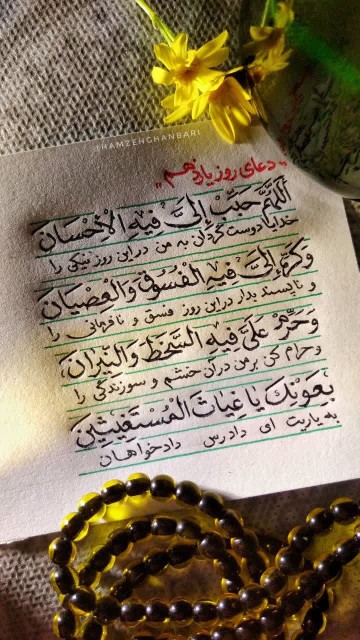 @HAMZEHGHANBARI
"دعای روز یازدهم"
اَللّهُمَّ حَبِّبْ اِلَیَّ فیهِ الْاِحْسانَ
خدایا دوست گردان به من در این روز نیکی را
وَ کَرِّهْ اِلَیَّ فیهِ الْفُسُوقَ وَالْعِصْیانَ
و ناپسند بدار در این روز فسق و نافرمانی را
وَ حَرِّمْ عَلَیَّ فیهِ السَّخَطَ وَالنّیرانَ
و حرام کن بر من در آن خشم و سوزندگی را
بِعَوْنِکَ یا غِیاثَ الْمُسْتَغیثینَ
به یاریت ای دادرس دادخواهان